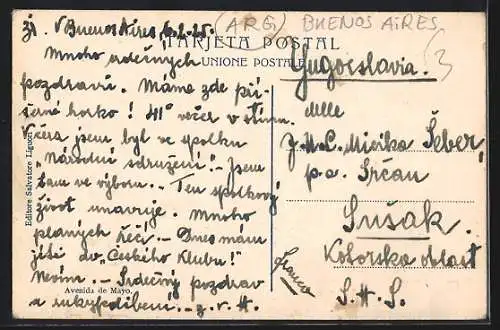 21. V Buenos Aires 6.2.25. (ARG) BUENOS AIRES
TARJETA POSTAL
UNIONE POSTALE
3
Mnoho srdečných
pozdravů. Máme zde pří-
šerné horko! 41° večer v stínu.
Včera jsem byl ve spolku
Národní sdružení! – Jsem
tam ve výboru. – Ten spolkový
život unavuje. Mnoho
planých řečí. – Dnes mám
jíti do „Českého Klubu!"
Nevím. – Srdečný pozdrav
a rukypolíbení. – z. r. H.
Editore Salvatore Liguori
Avenida de Mayo.
Jugoslavia.
delle
Šeber,
p.a. Srčan
Sušak.
Kotorska oblast
S.H.S.
franco